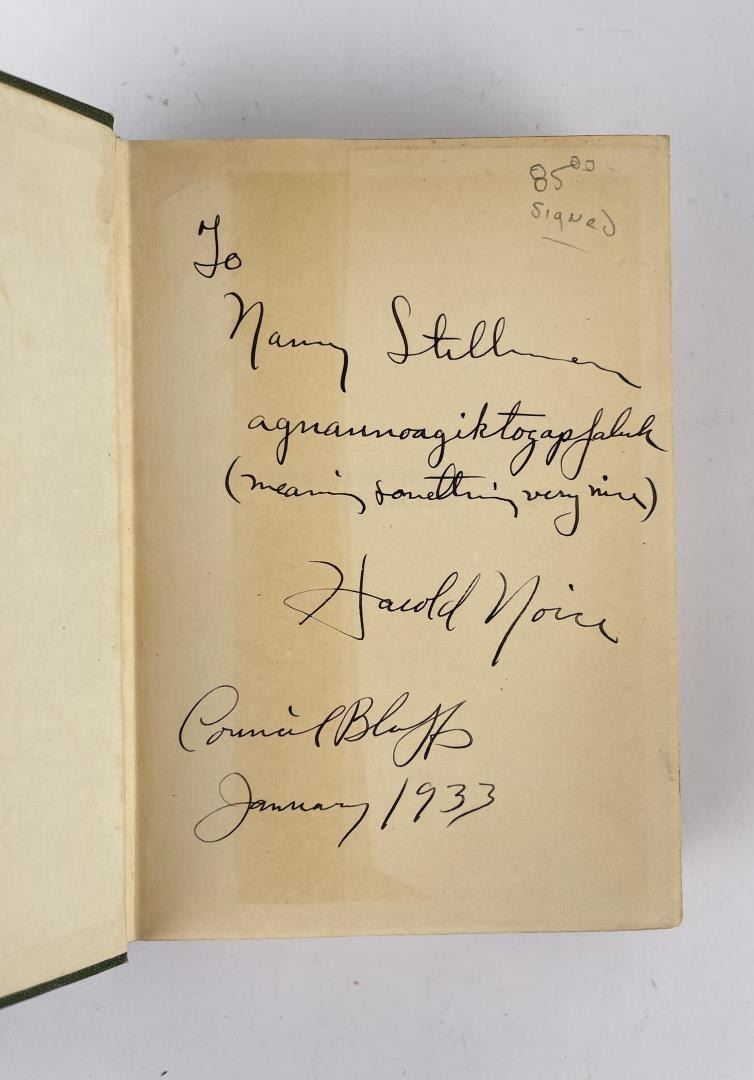 85⁰⁰
Signed
To
Nancy Stillman
(meaning something very nice)
Harold Noice
Council Bluffs
January 1933